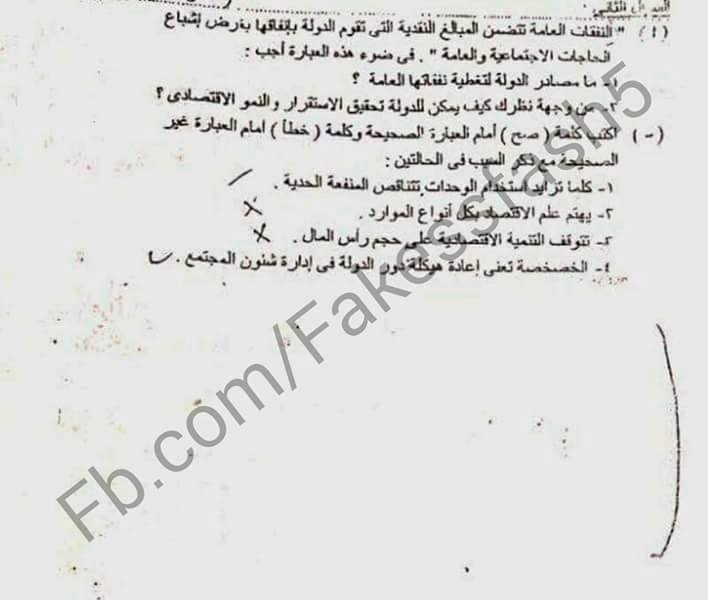 السؤال الثاني :
( أ ) " النفقات العامة تتضمن المبالغ النقدية التى تقوم الدولة بإنفاقها بغرض إشباع
الحاجات الاجتماعية والعامة " . فى ضوء هذه العبارة أجب :
١- ما مصادر الدولة لتغطية نفقاتها العامة ؟
٢- من وجهة نظرك كيف يمكن للدولة تحقيق الاستقرار والنمو الاقتصادى ؟
(ـ) اكتب كلمة ( صح ) أمام العبارة الصحيحة وكلمة ( خطأ ) امام العبارة غير
الصحيحة مع ذكر السبب فى الحالتين :
١- كلما تزايد استخدام الوحدات تتناقص المنفعة الحدية .
٢- يهتم علم الاقتصاد بكل أنواع الموارد .
٣- تتوقف التنمية الاقتصادية على حجم رأس المال .
٤- الخصخصة تعنى إعادة هيكلة دور الدولة فى إدارة شئون المجتمع .
Fb.com/Fakesstash5